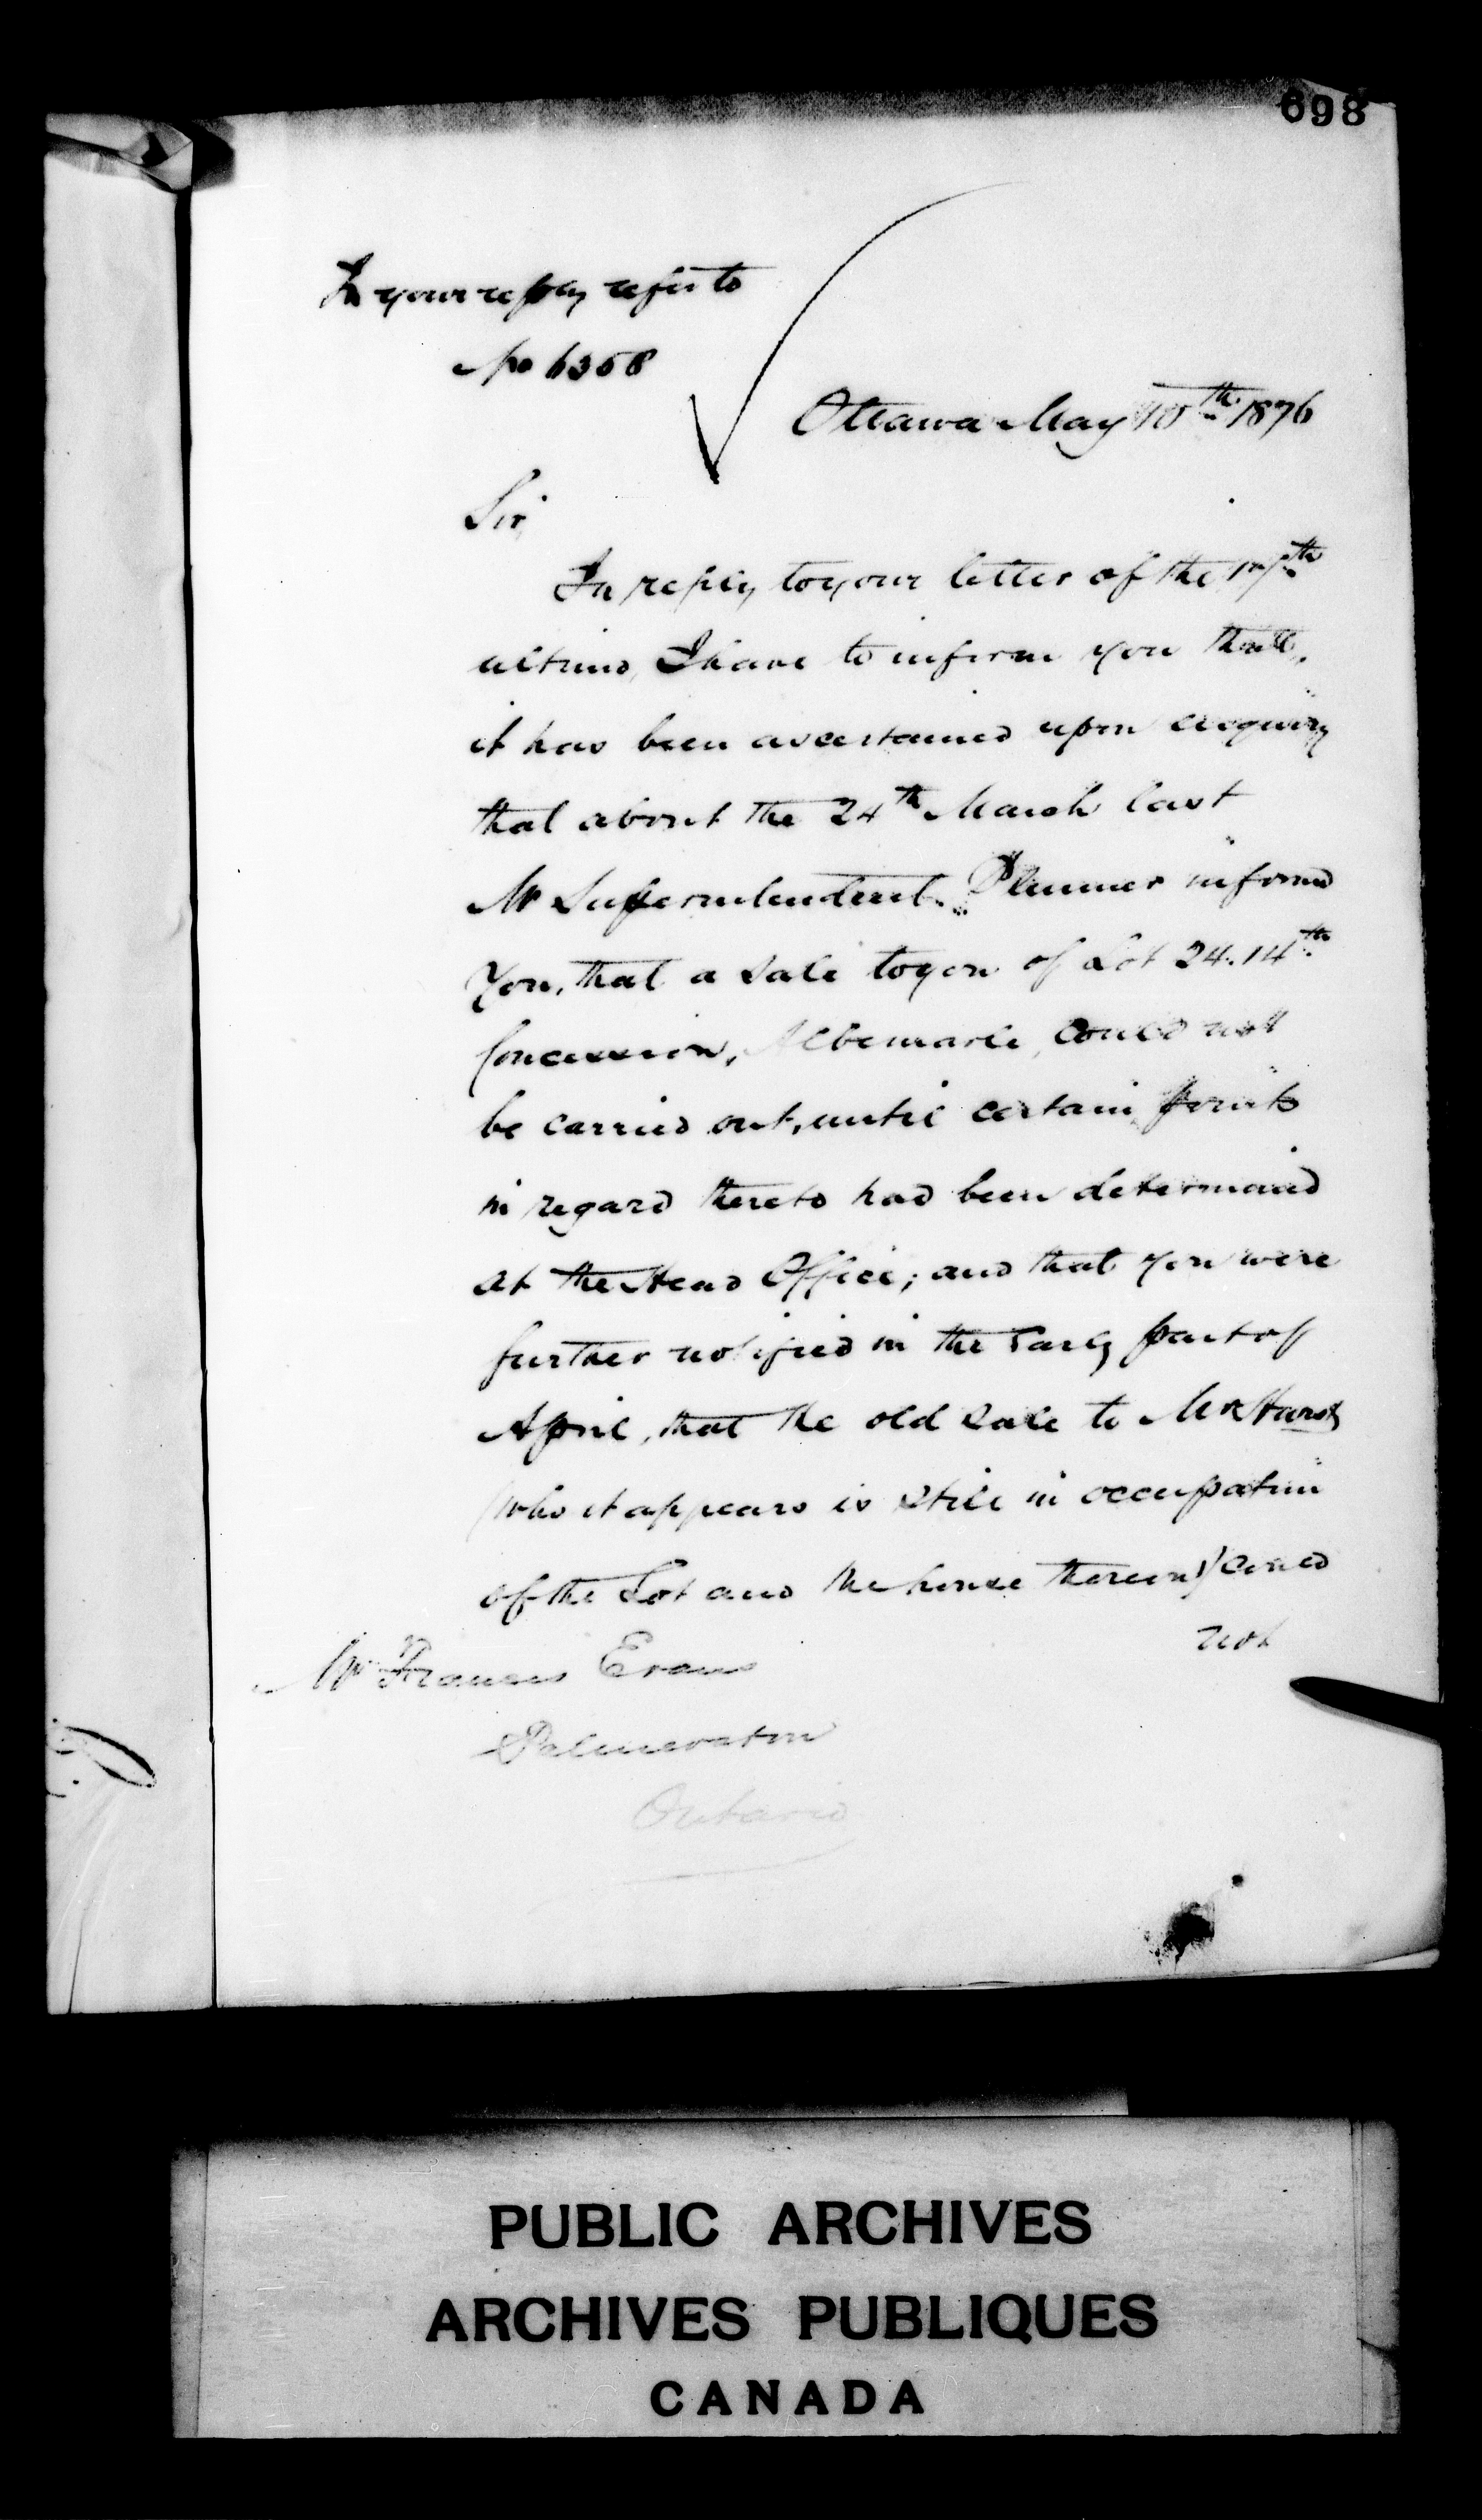 698
In your reply refer to
No 6358
Ottawa May 10th 1876
Sir,
In reply to your letter of the 17th
ultimo, I have to inform you that,
it has been ascertained upon enquiry
that about the 24th March last
Mr Superintendent Plummer informed
You, that a sale to you of Lot 24. 14th
Concession, Albemarle, could not
be carried out, until certain points
in regard thereto had been determined
at the Head Office; and that you were
further notified in the early part of
April, that the old sale to Mr
(who it appears is still in occupation
of the Lot and the house thereon) could
not
Mr Francis Evans
Palmerston
Ontario
PUBLIC ARCHIVES
ARCHIVES PUBLIQUES
CANADA